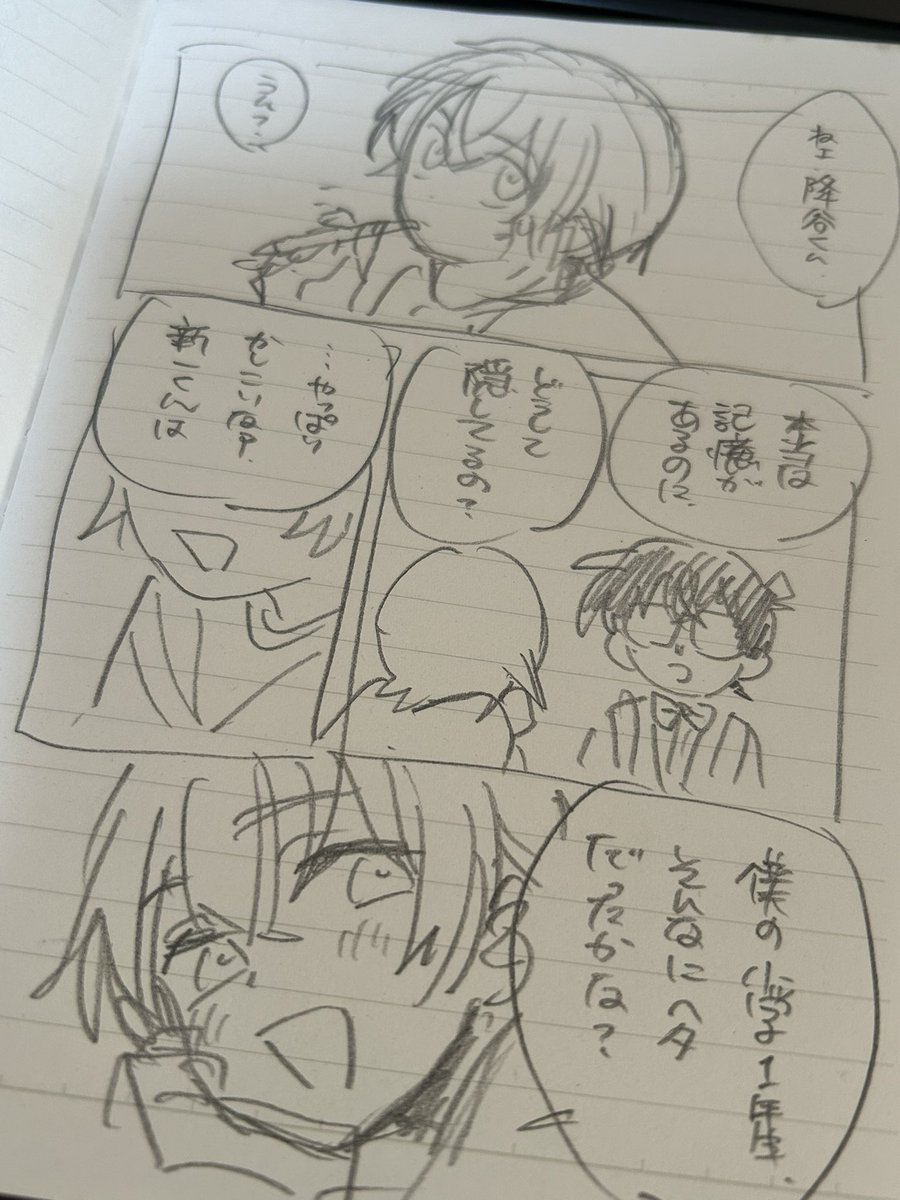 ねェ、降谷くん、
うん?…
本当は
記憶が
あるのに、
どうして
隠してるの?
…やっぱり
かしこいなァ、
新一くんは
僕の小学1年生、
そんなにヘタ
だったかな?